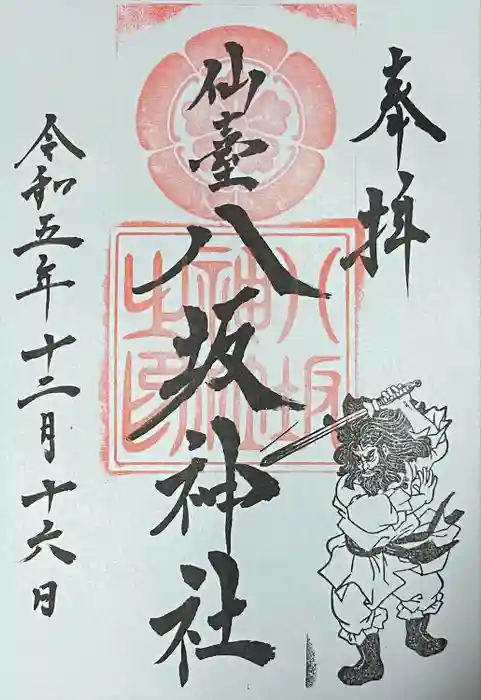 奉拝
仙臺
八坂神社
八坂
神社
之印
令和五年十二月十六日